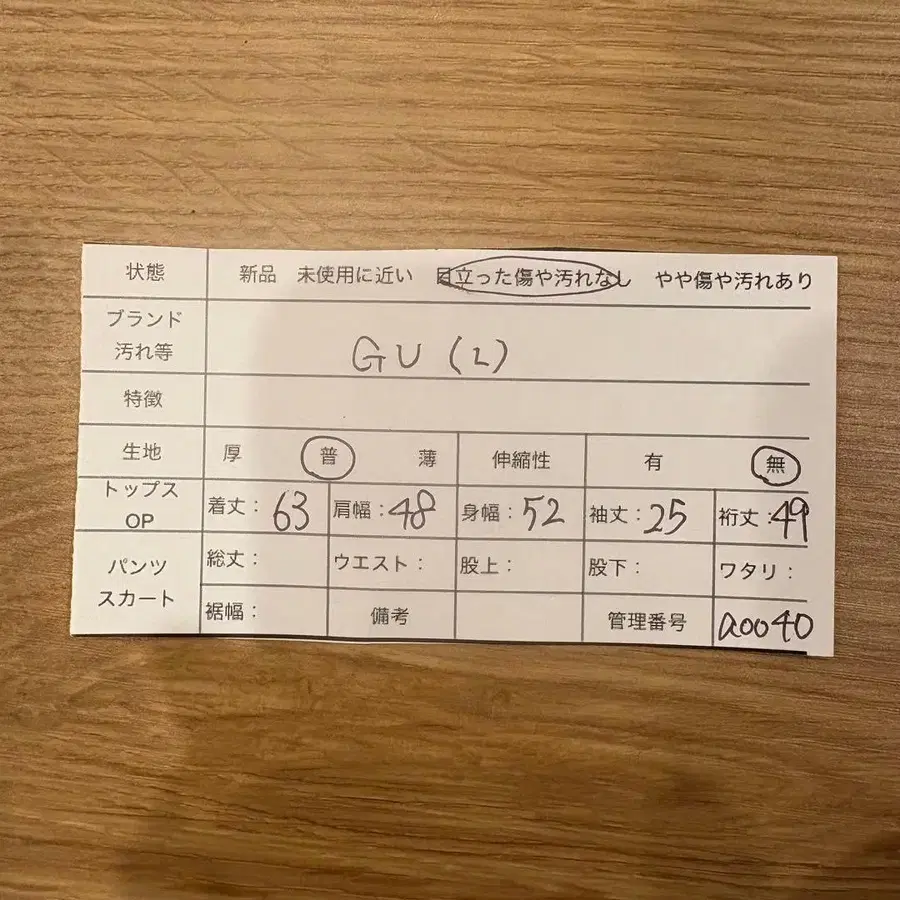 状態 新品 未使用に近い 目立った傷や汚れなし やや傷や汚れあり
ブランド
汚れ等
GU (L)
特徴
生地 厚 普 薄 伸縮性 有 無
トップス
OP
着丈: 63 肩幅: 48 身幅: 52 袖丈: 25 裄丈: 49
パンツ
スカート
総丈: ウエスト: 股上: 股下: ワタリ:
裾幅: 備考 管理番号 a0040